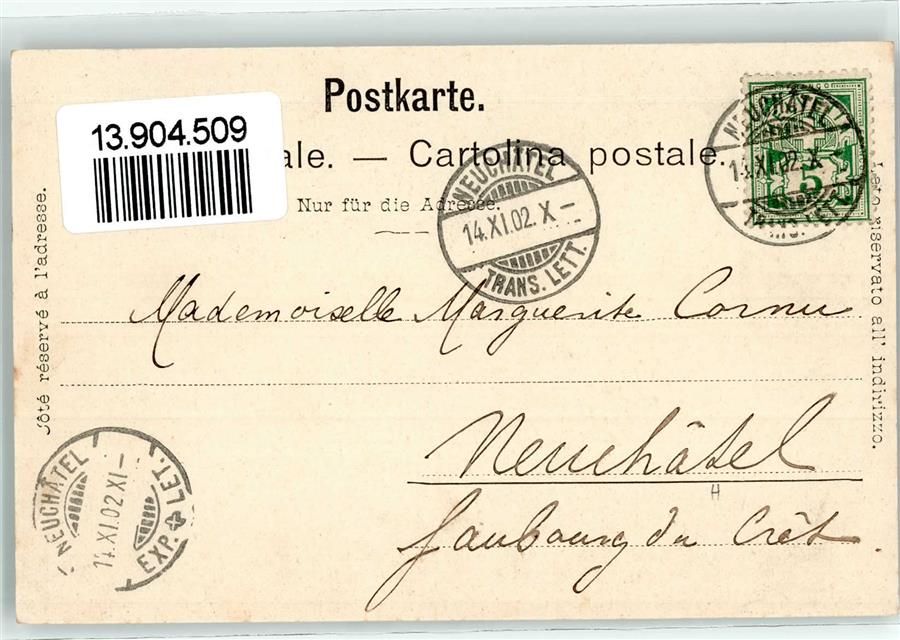 Postkarte.
13.904.509
ale. — Cartolina postale.
Nur für die Adresse.
NEUCHÂTEL
14.XI.02.X–
TRANS. LETT.
NEUCHÂTEL
14.XI.02.X
5
Côté réservé à l'adresse.
Lato riservato all' indirizzo.
Mademoiselle Marguerite Cornu
Neuchâtel
faubourg du Crêt.
NEUCHÂTEL
14.XI.02.XI–
EXP. LET.